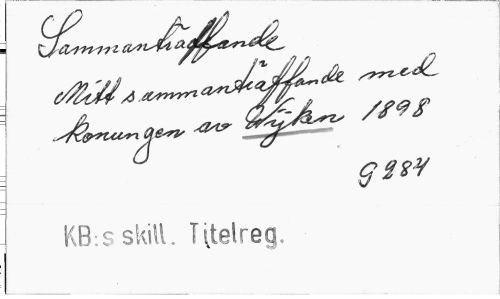 Sammanträffande
Mitt sammanträffande med
konungen av Wijken 1898
G 284
KB:s skill. Titelreg.